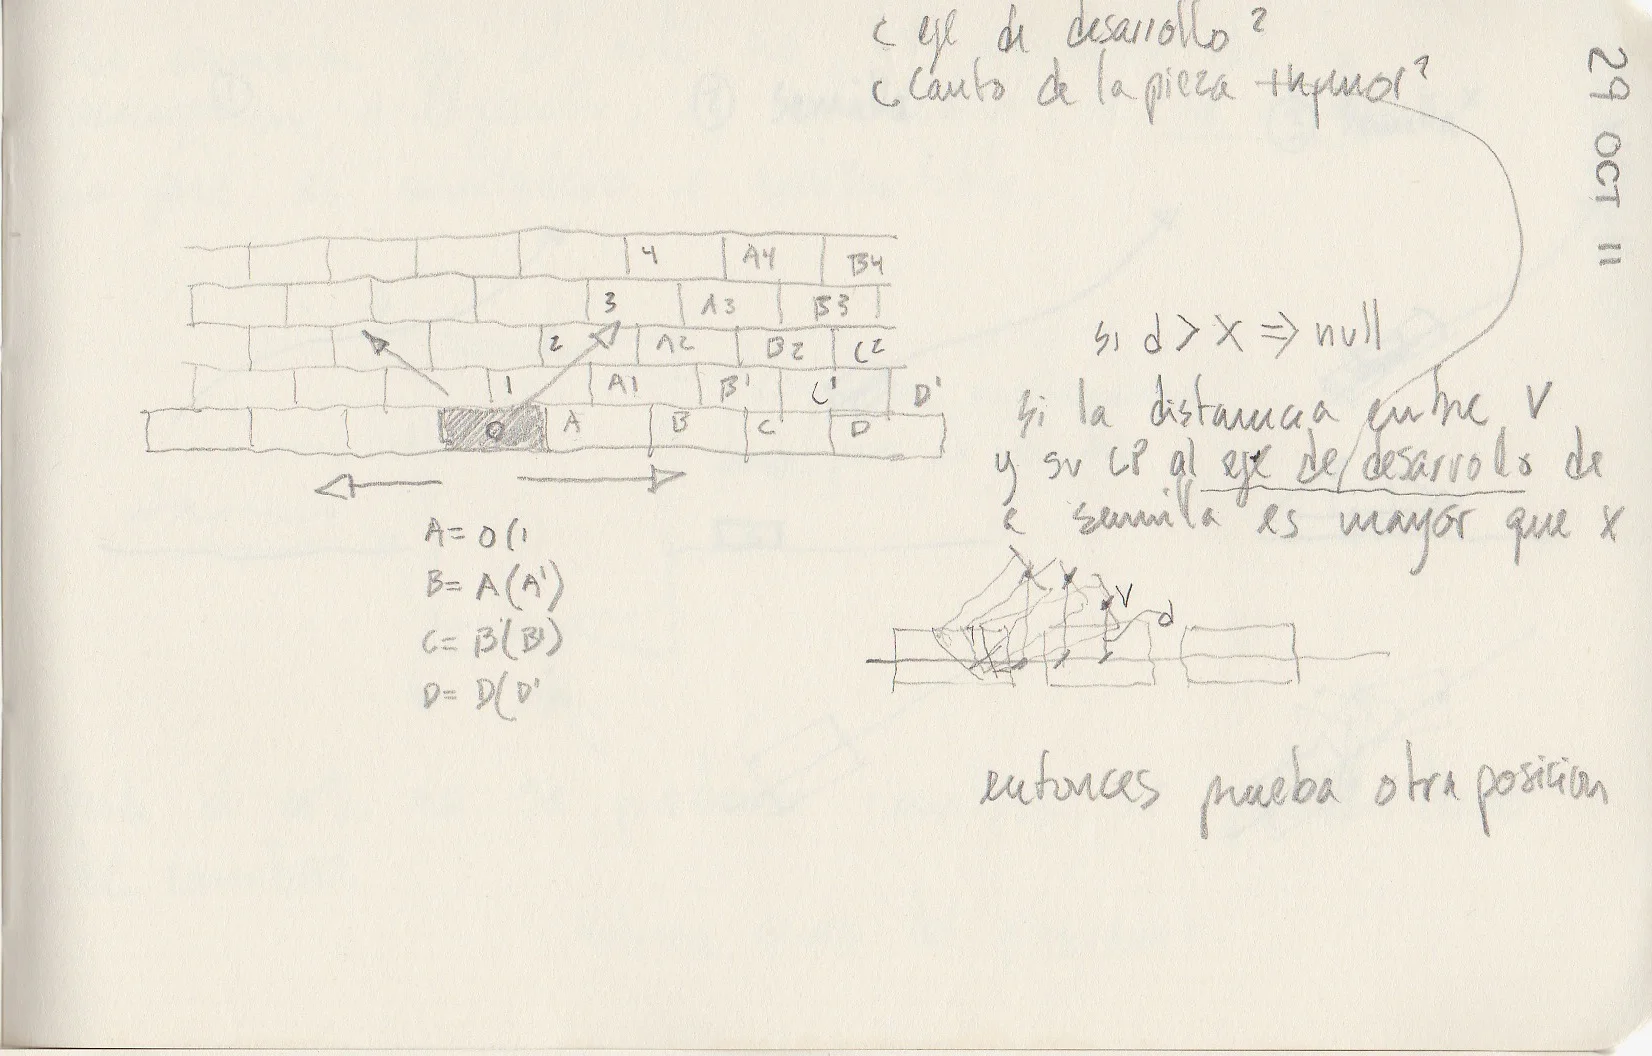 ¿ eje de desarrollo?
¿ canto de la pieza +
29 OCT 11
4 A4 B4
3 A3 B3
2 A2 B2 C2
1 A1 B' C' D'
0 A B C D
A= 0(1
B= A(A')
C= B(B')
D= D(D'
si d > x ⇒ null
si la distancia entre V
y su CP al eje de desarrollo de
semilla es mayor que x
V
d
entonces prueba otra posicion